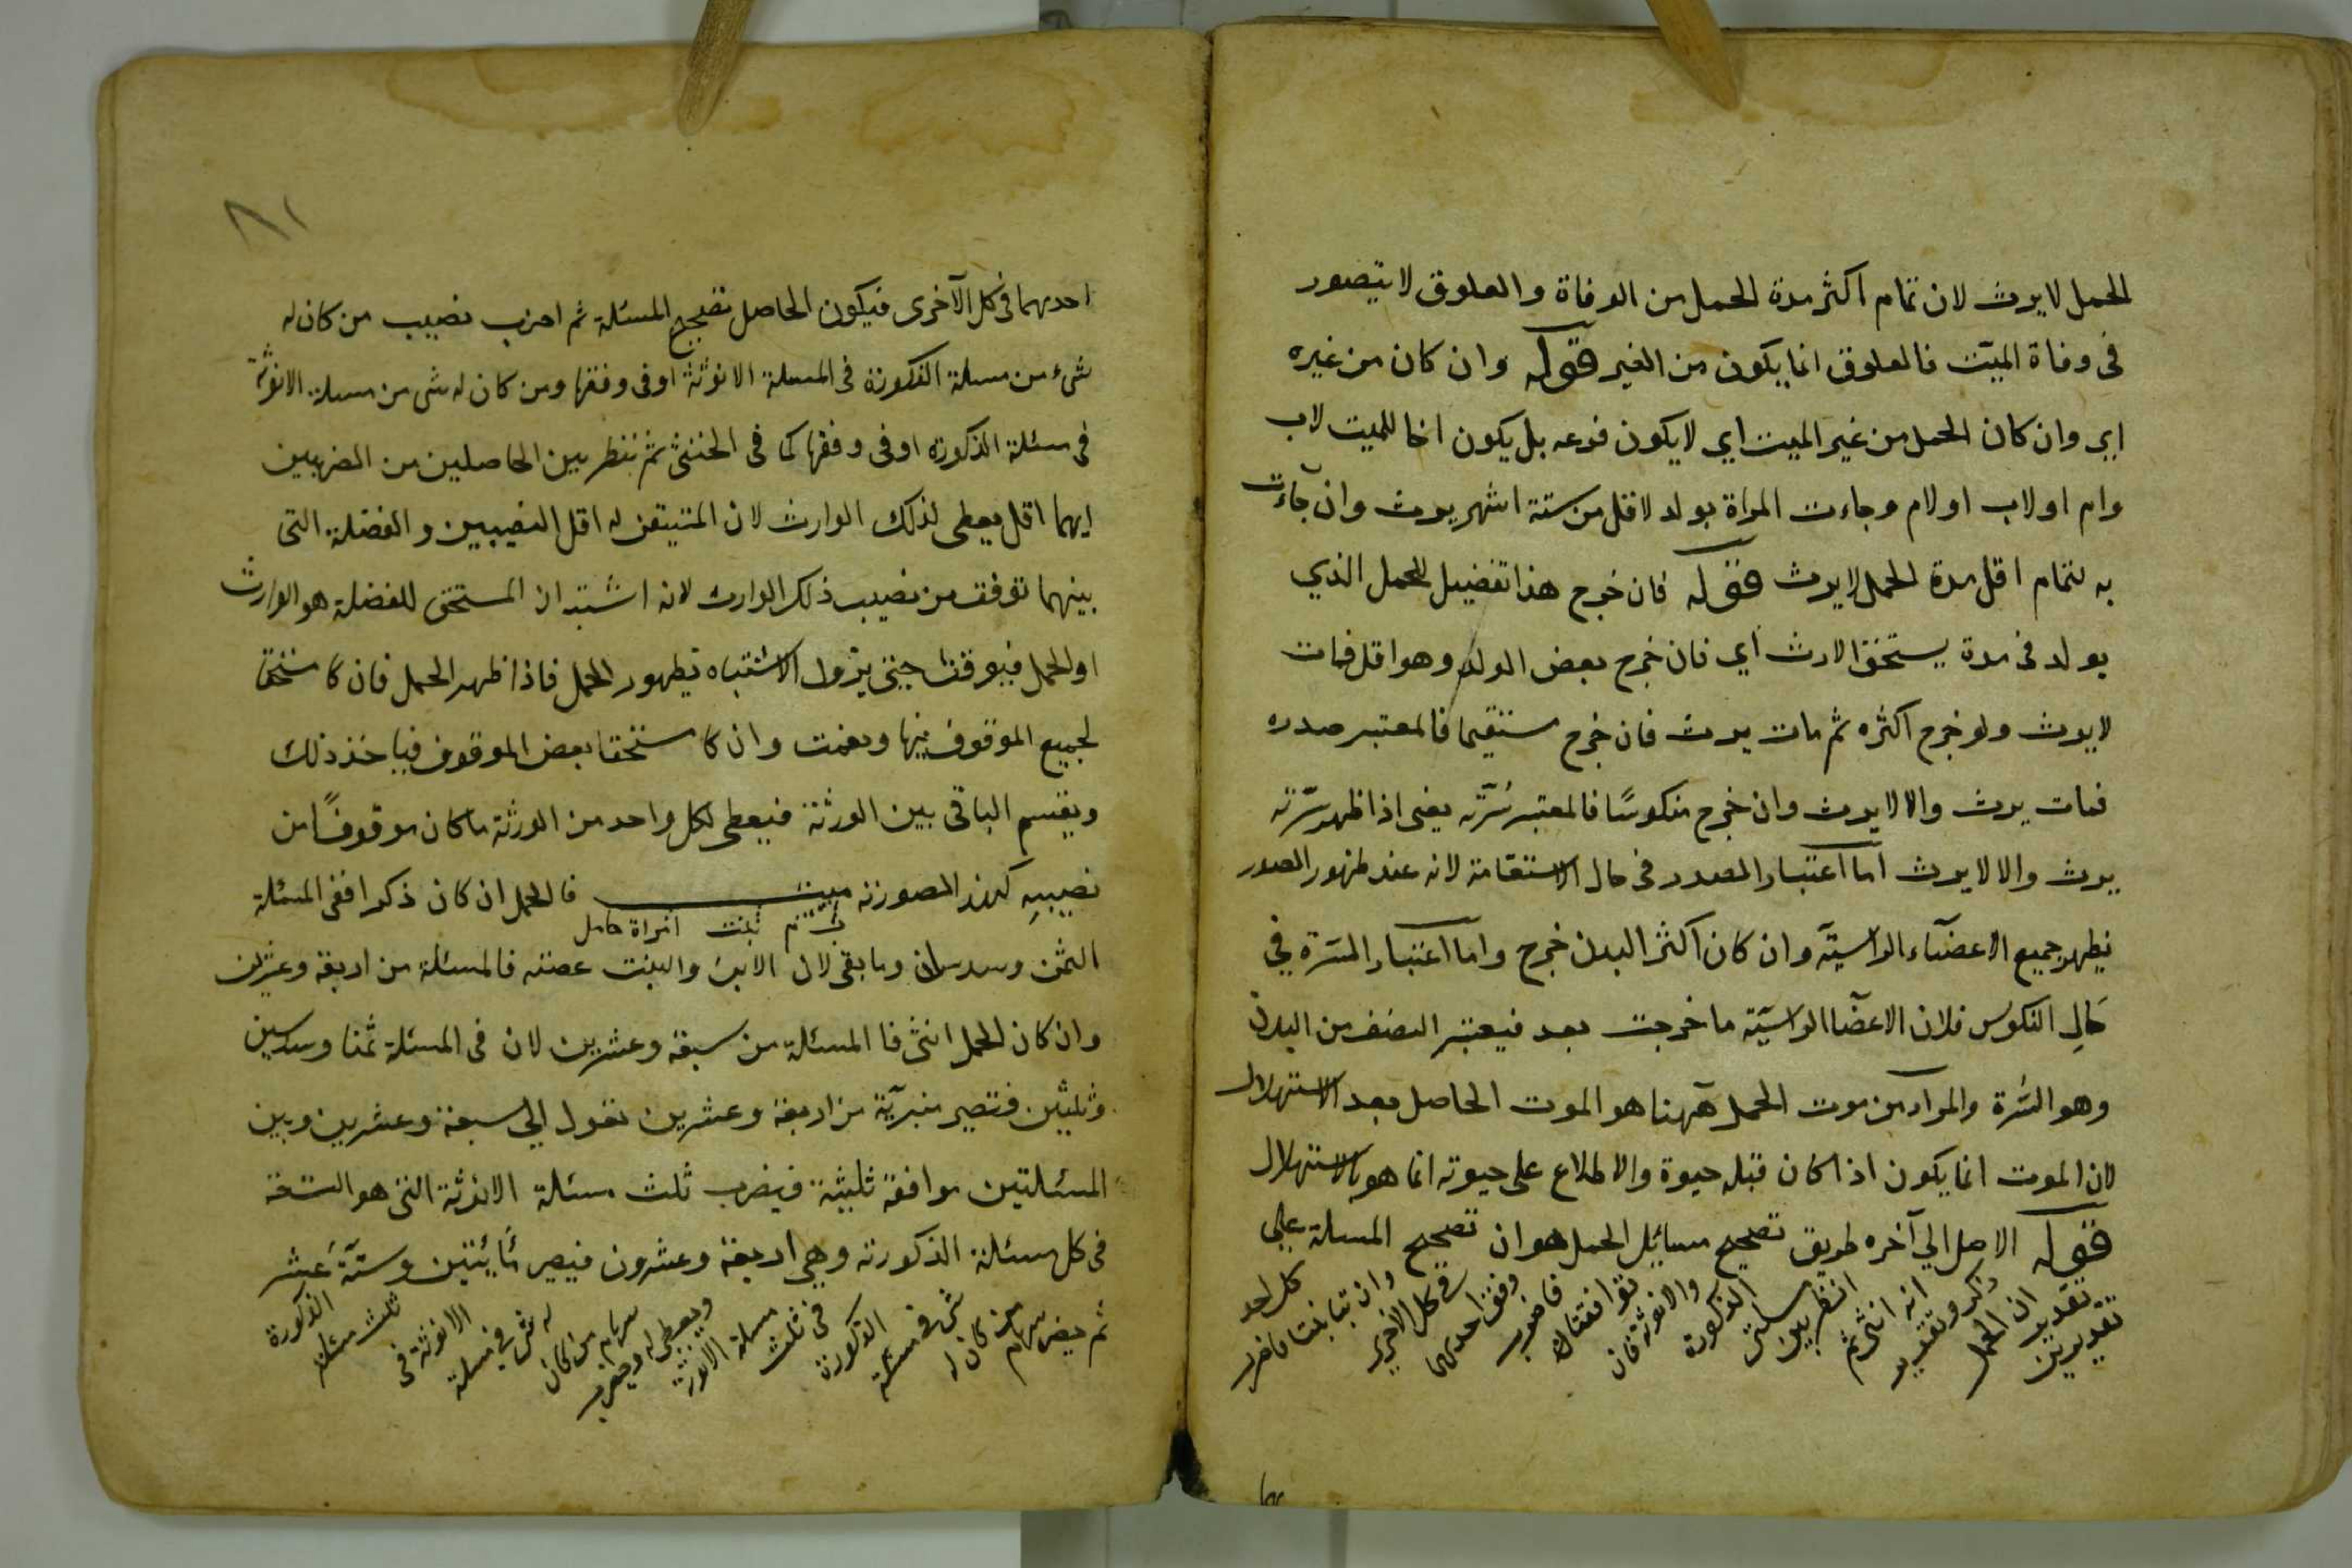 الحمل لا يرث لان تمام اكثر مدة الحمل من الوفاة والعلوق لا يتصور
فى وفاة الميت فالعلوق انما يكون من الغير قوله وان كان من غيره
اي وان كان الحمل من غير الميت اي لا يكون فرعه بل يكون اخا للميت لاب
وام او لاب او لام وجاءت المراة بولد لاقل من ستة اشهر يرث وان جاءت
به لتمام اقل مدة الحمل لا يرث قوله فان خرج هذا تفضيل للحمل الذي
يولد فى مدة يستحق الارث اي فان خرج بعض الولد وهو اقل فمات
لا يرث ولو خرج اكثره ثم مات يرث فان خرج مستقيما فالمعتبر صدره
فمات يرث والا لا يرث وان خرج منكوسًا فالمعتبر سُرّته يعنى اذا ظهر سرّته
يرث والا لا يرث اما اعتبار الصدر فى حال الاستقامة لانه عند ظهور الصدر
يظهر جميع الاعضآء الراسيّة وان كان اكثر البدن خرج واما اعتبار السّرة في
حَالِ النكوس فلان الاعضآ الراسيّة ما خرجت بعد فيعتبر النصف من البدن
وهو السّرة والمراد من موت الحمل هٓهنا هو الموت الحاصل بعد الاستهلال
لان الموت انما يكون اذا كان قبله حيوة والاطلاع على حيوته انما هو بالاستهلال
قوله الاصل الي آخره طريق تصحيح مسايل الحمل هو ان تصحيح المسلة علي
تقديرين
تقدير ان الحمل
ذكر وتقدير
انه انثى ثم
انظر بين
مسلتى الذكورة
والانوثة فان
توافقتا
فاضرب
وفق احديهما
في كل الاخري
وان تباينتا فاضرب
كل احد
بها
٨١
احديهما فى كل الآخرى فيكون الحاصل تصحيح المسئلة ثم اضرب نصيب من كان له
شىء من مسلة الذكورة فى المسلة الانوثة او فى وفقها ومن كان له شى من مسلة الانوثة
فى مسئلة الذكورة او فى وفقها كما فى الخنثى ثم ننظر بين الحاصلين من الضربين
ايهما اقل يعطى لذلك الوارث لان المتيقن له اقل النصيبين والفضلة التى
بينهما توقف من نصيب ذلك الوارث لانه اشتبه ان المستحق للفضلة هو الوارث
او الحمل فيوقف حتى يزول الاشتباه بظهور الحمل فاذا ظهر الحمل فان كا مستحقا
لجميع الموقوف فبها ونعمت وان كا مستحقا بعض الموقوف فياخذ ذلك
ويقسم الباقى بين الورثة فيعطى لكل واحد من الورثة ما كان موقوفًا من
نصيبِهِ كهذه الصورة ميت فالحمل ان كان ذكرا ففى المسئلة
اب ام بنت امراة حامل
الثمن وسدسان وما بقى لان الابن والبنت عصبة فالمسئلة من اربعة وعشرين
وان كان الحمل انثى فا المسئلة من سبعة وعشرين لان فى المسئلة ثمنا وسدسين
وثلثين فتصير منبريّة من اربعة وعشرين تعول الي سبعة وعشرين وبين
المسئلتين موافقة ثلثية فيضرب ثلث مسئلة الانوثة التى هو التسعة
فى كل مسئلة الذكورة وهي اربعة وعشرون فيصير مأيتين وستّةَ عَشر
ثم يضرب سهام
من كان له
شى فى مسئلة
الذكورة
فى ثلث
مسلة الانوثة
ويعطى له ويضرب
سهام من كان
له شى في مسلة
الانوثة فى
ثلث مسئلة
الذكورة